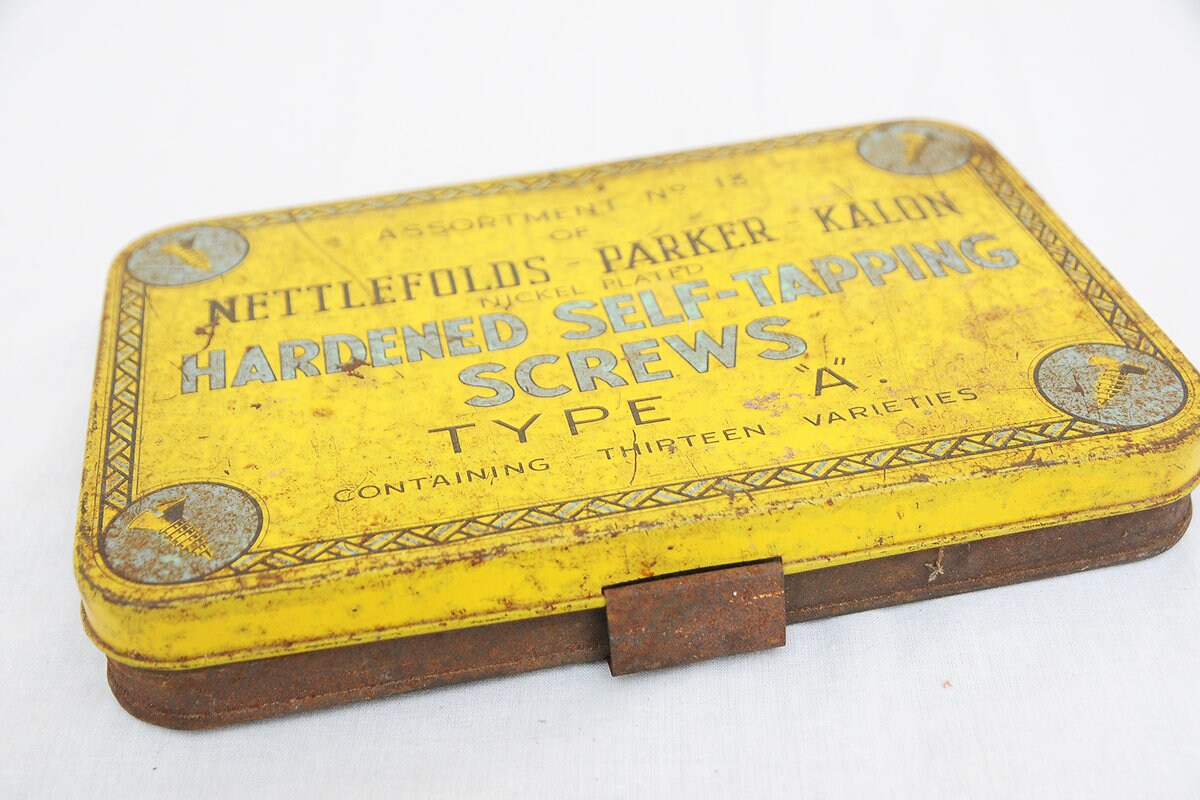 ASSORTMENT Nº 13
OF
NETTLEFOLDS - PARKER - KALON
NICKEL PLATED
HARDENED SELF-TAPPING
SCREWS
TYPE "A".
CONTAINING THIRTEEN VARIETIES